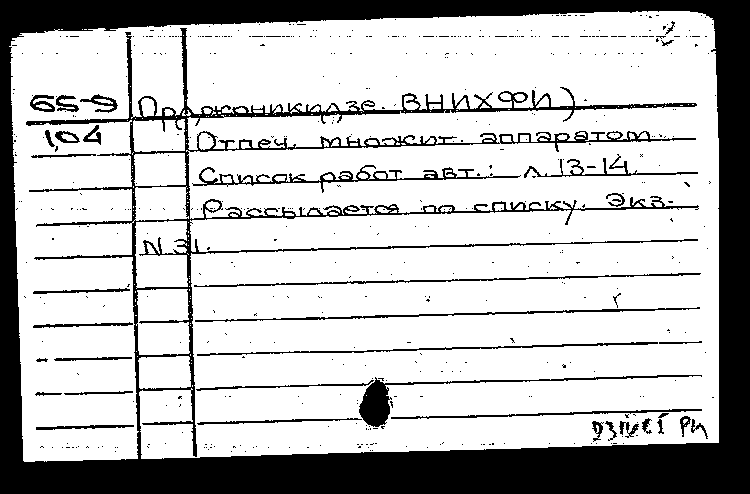 2
65-9 Орджоникидзе. ВНИХФИ)
104 Отпеч. множит. аппаратом.
Список работ авт.: л. 13-14.
Рассылается по списку. Экз.
N 31.